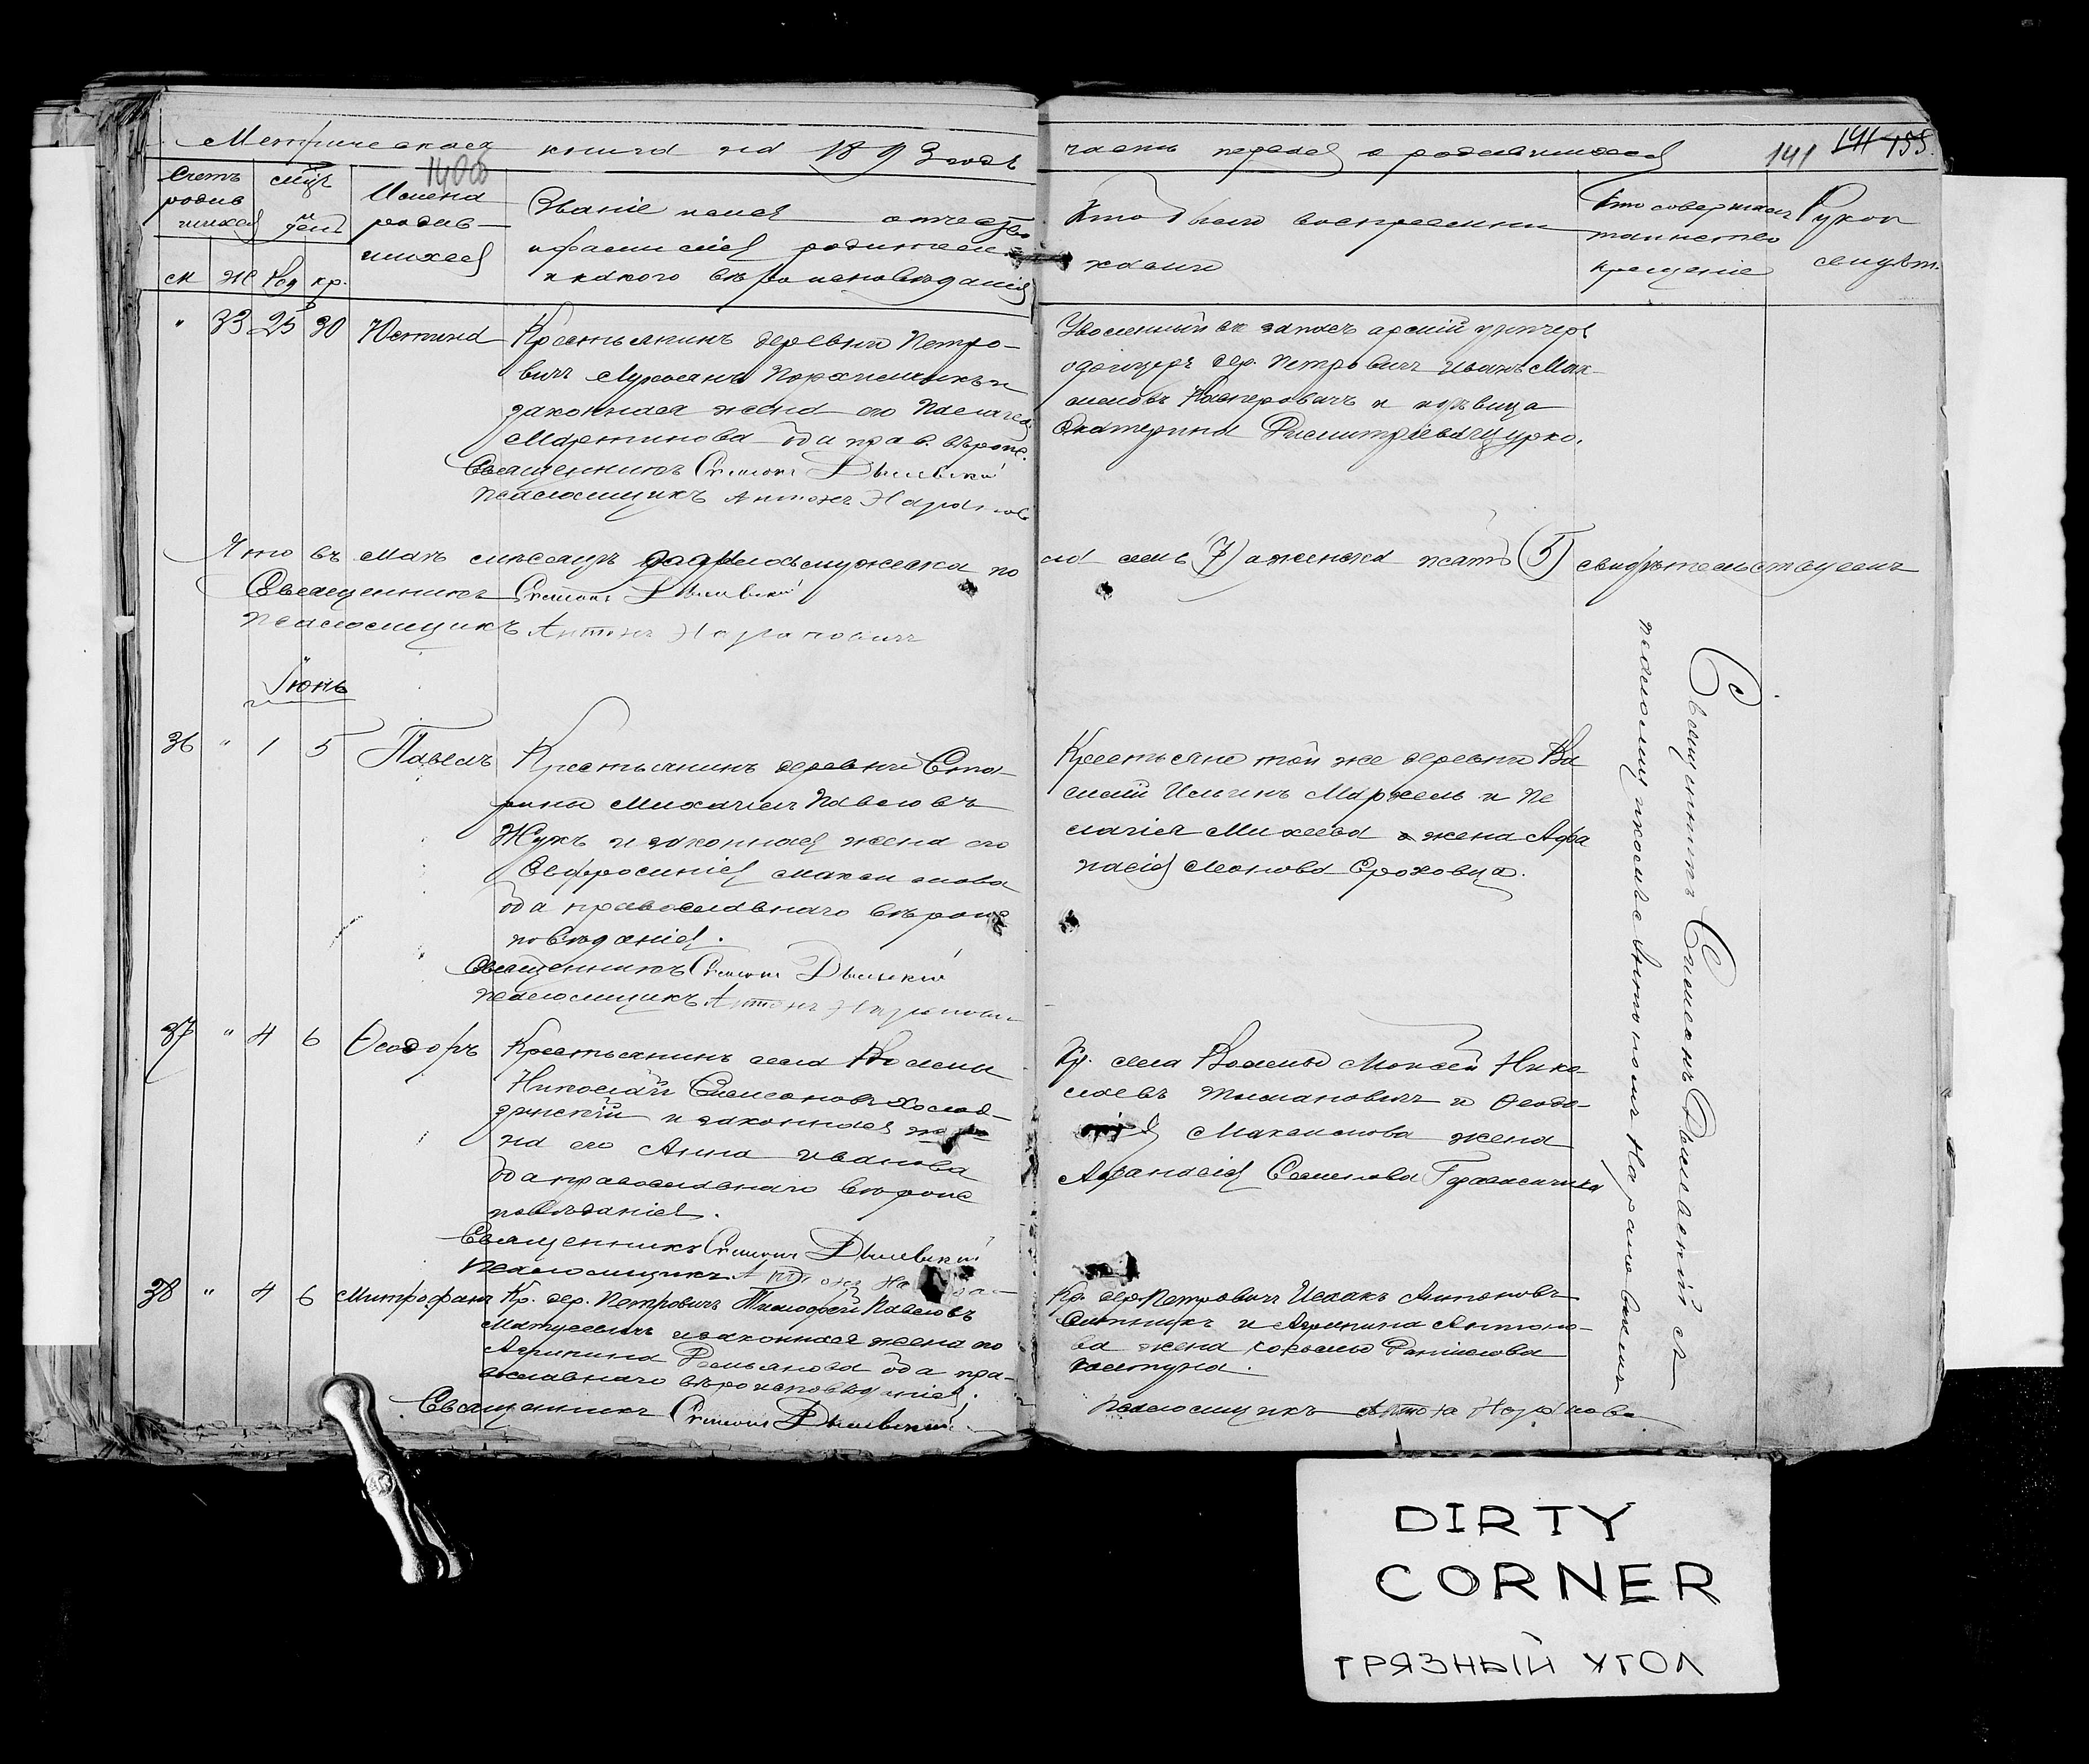 Метрическая книга на 1893 годъ
часть первая о родившихся
141 141 155.
1406
Счетъ родив шихся
мцъ и день
Имена родив- шихся
Званіе имя отчество
и фамилія родителей
и какого вѣроисповѣданія
Кто былъ воспріемни
ками
Кто совершалъ
таинство
крещенія
Рукоп
свидѣт.
м ж род кр.
" 33 25 30 Юстина
Крестьянинъ деревни Петро-
вичъ
законная жена его Пелагея
Мартинова оба прав. вѣроис.
Священникъ Симеонъ Дылевскій
Псаломщикъ Антонъ
Уволенный въ запасъ арміи унтеръ
офицеръ дер. Петровичъ Иванъ Мак-
симовъ и дѣвица
Екатерина Димитріева Цурко.
Что въ маѣ мѣсяцѣ родилось мужеска по
ла семь (7) а женска пять (5) свидѣтельствуемъ
Священникъ Симеонъ Дылевскій
Псаломщикъ Антонъ
Іюнь
36 " 1 5 Павелъ
Крестьянинъ деревни Ста-
рины Михаилъ Павловъ
Жукъ и законная жена его
Евфросинія Максимова
оба православнаго вѣроис
повѣданія.
Священникъ Симеонъ Дылевскій
Псаломщикъ Антонъ
Крестьяне той же деревни Ва
силій Илиинъ и Пе
лагія Михеева жена Афа
насія Леонова Ероховца.
37 " 4 6 Ѳеодоръ
Крестьянинъ села Волмы
Николай Симеоновъ Холод-
зинскій и законная же
на его Анна Иванова
оба православнаго вѣроис
повѣданія.
Священникъ Симеонъ Дылевскій
Псаломщикъ Антонъ
Кр. села Волмы Моисей Нико-
лаевъ и Ѳеодо-
Максимова жена
Афанасія Семенова
38 " 4 6 Митрофанъ
Кр. дер. Петровичъ Тимофей Павловъ
Матусевичъ и законная жена его
Агрипина Демьянова оба пра-
вославнаго вѣроисповѣданія.
Священникъ Симеонъ Дылевскій
Кр. дер. Петровичъ Исаакъ Антоновъ
и Агрипина Антоно-
ва жена Даніилова
Псаломщикъ Антонъ
Священникъ Симеонъ Дылевскій съ
псаломщикомъ Антономъ
DIRTY
CORNER
ГРЯЗНЫЙ УГОЛ